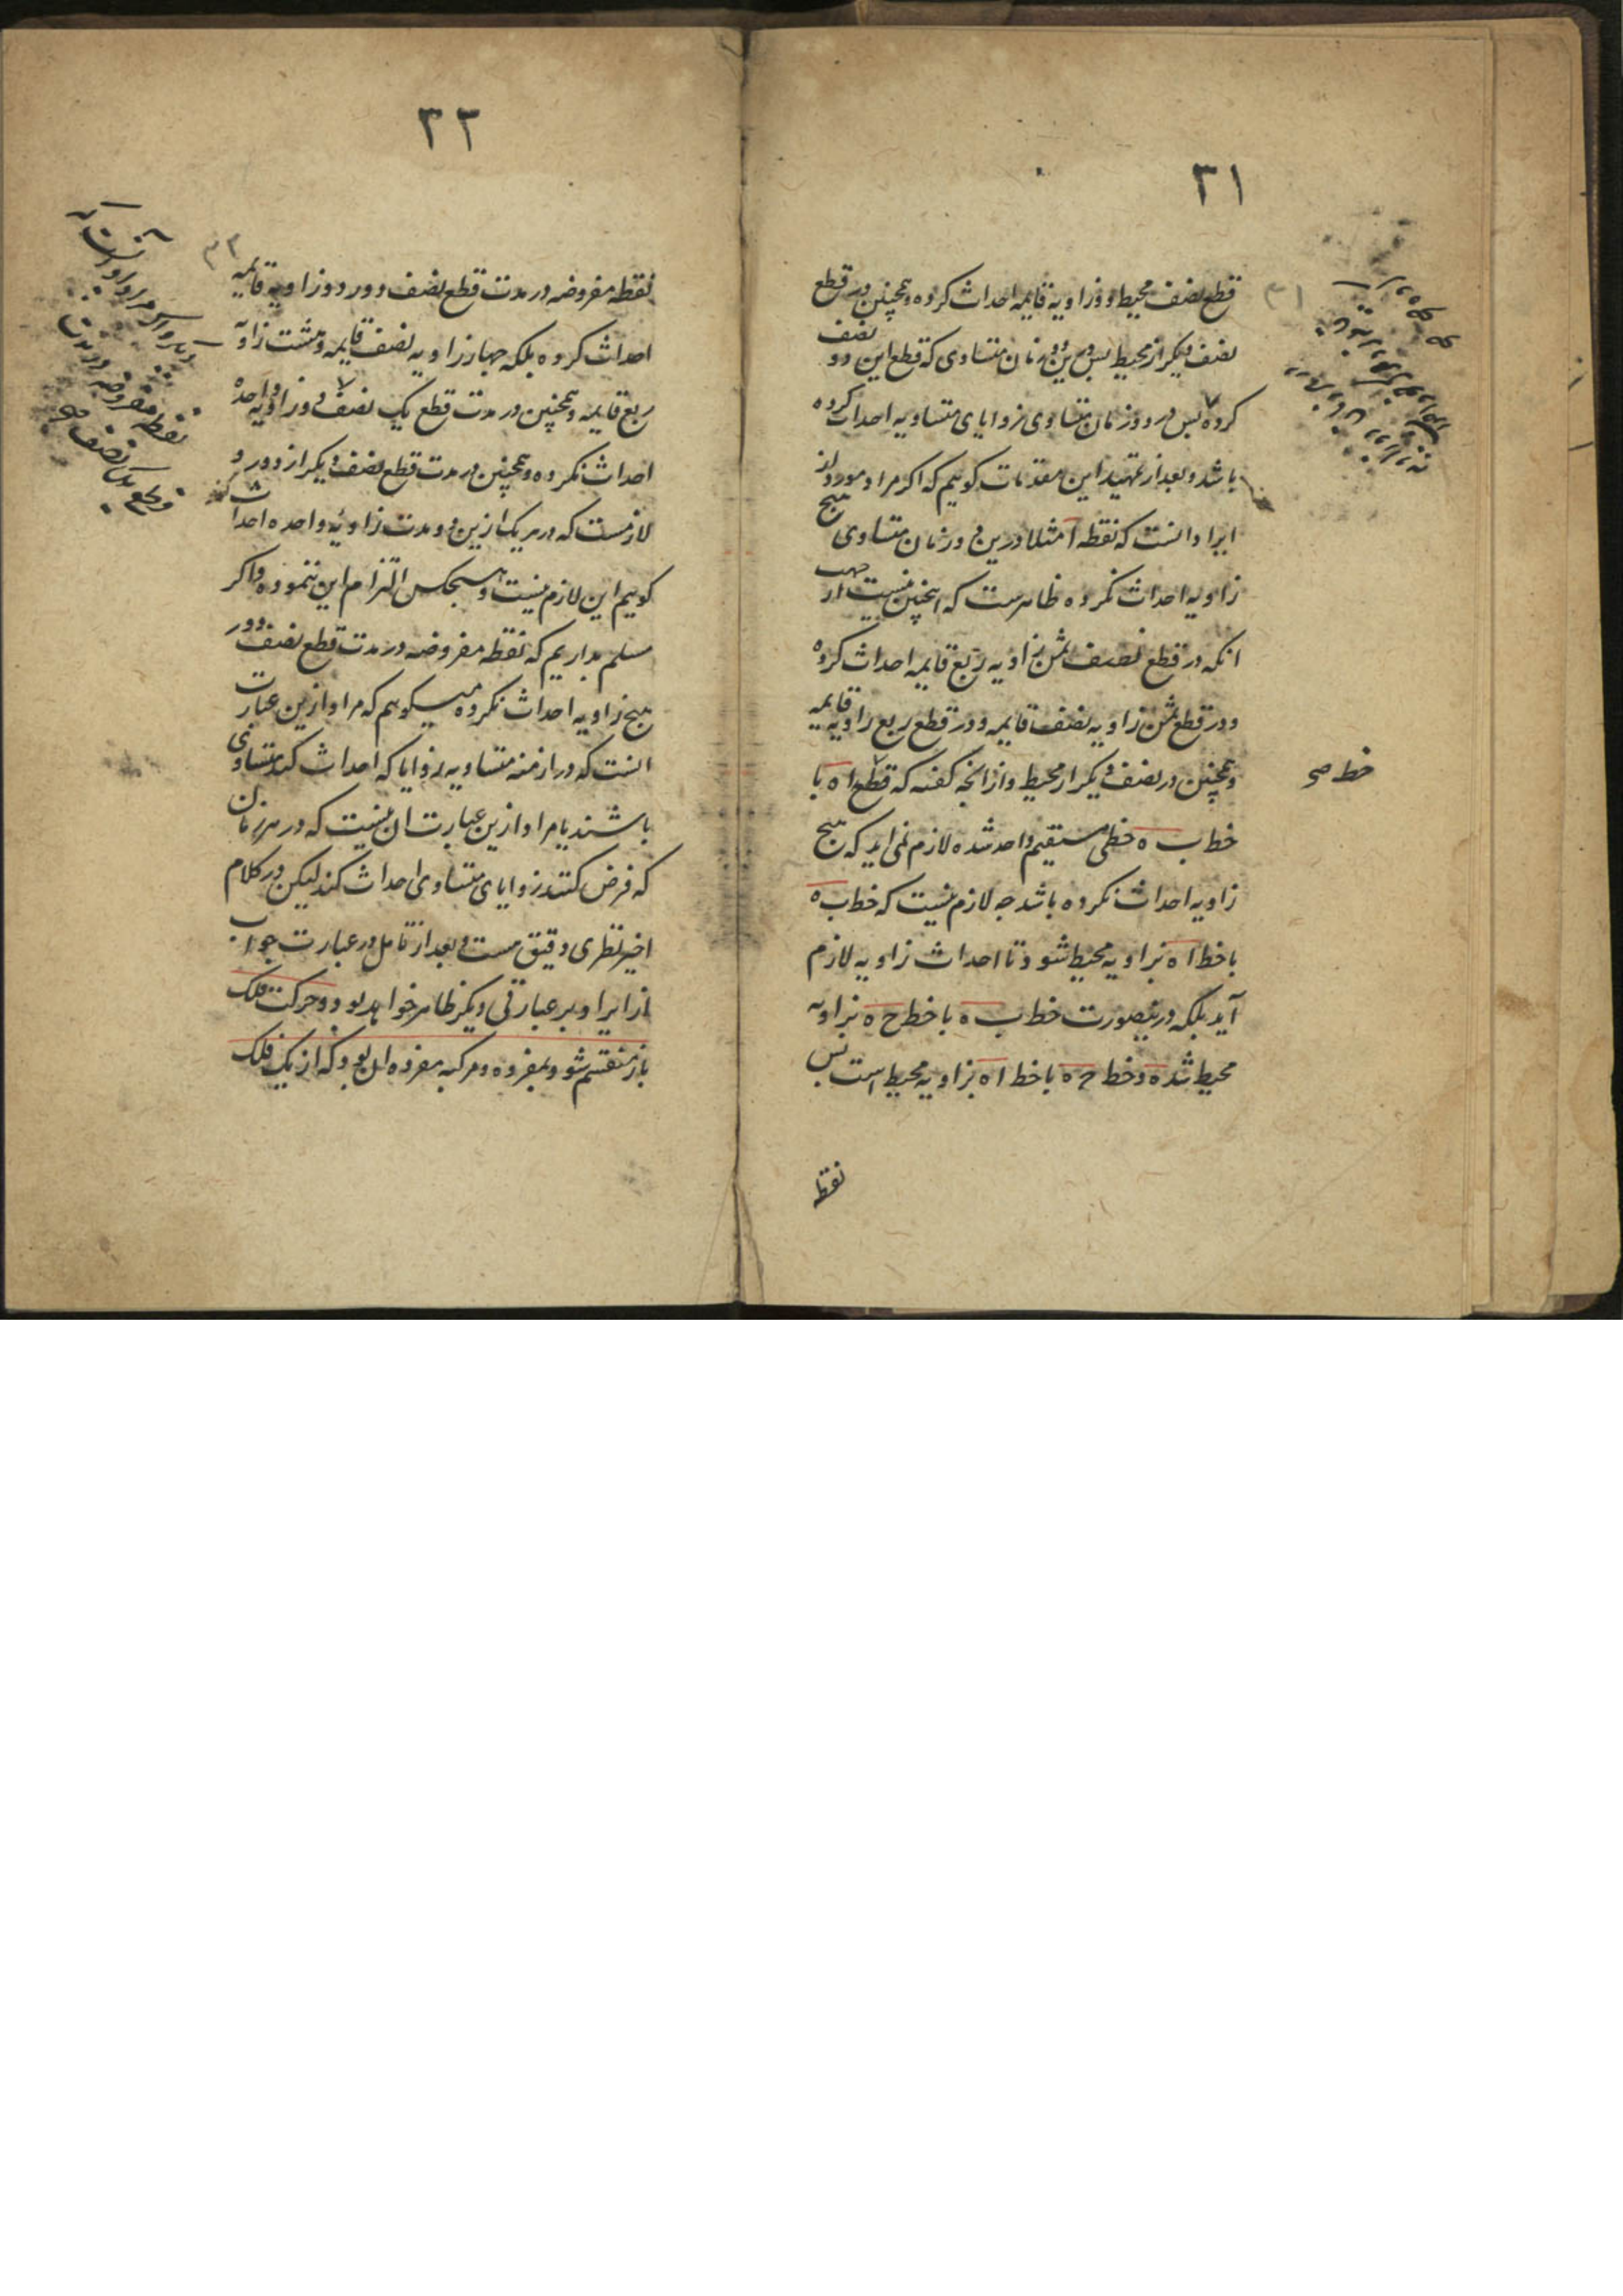 ٣١
قطع نصف محیط دو زاویه قایمه احداث کرده و همچنین در قطع
نصف دیکر از محیط پس درین دو زمان متساوی که قطع این دو نصف
کرده پس در دو زمان متساوی زوایای متساویه احداث کرده
باشد و بعد از تمهید این مقدمات کوییم که اکر مراد مورد از
ایراد انست که نقطه ا مثلا درین دو زمان متساوی هیچ
زاویه احداث نکرده ظاهرست که اینچنین نیست از جهت
انکه در قطع نصف ثمن زاویه ربع قایمه احداث کرده
و در قطع ثمن زاویه نصف قایمه و در قطع ربع زاویه قایمه
و همچنین در نصف دیکر از محیط و از انچه کفته که قطع ا ه با
خط ب ه خطی مستقیم واحد شده لازم نمی اید که هیچ
زاویه احداث نکرده باشد چه لازم نیست که خط ب ه
با خط ا ه بزاویه محیط شود تا احداث زاویه لازم
آید بلکه درینصورت خط ب ه با خط ح ه بزاویه
محیط شده و خط ح ه با خط ا ه بزاویه محیط است پس
نقطه
خط صح
٣٢
نقطه مفروضه در مدت قطع نصف دور دو زاویه قایمه
احداث کرده بلکه چهار زاویه نصف قایمه و هشت زاویه
ربع قایمه و همچنین در مدت قطع یک نصف دور زاویه واحده
احداث نکرده و همچنین در مدت قطع نصف دیکر از دور و
لازمست که در هریک ازین دو مدت زاویه واحده احداث کند
کوییم این لازم نیست و هیچکس التزام این ننموده و اکر
مسلم بداریم که نقطه مفروضه در مدت قطع نصف دور
هیچ زاویه احداث نکرده میکوییم که مراد ازین عبارت
انست که در ازمنه متساویه زوایا که احداث کند متساوی
باشند یا مراد ازین عبارت ان نیست که در هر زمان
که فرض کنند زوایای متساوی احداث کند لیکن در کلام
اخیر نظری دقیق هست و بعد از تامل در عبارت جواب
از ایراد بر عبارتی دیکر ظاهر خواهد بود و حرکت فلک
باز منقسم شود بمفرده و مرکبه مفرده ان بود که از یک فلک